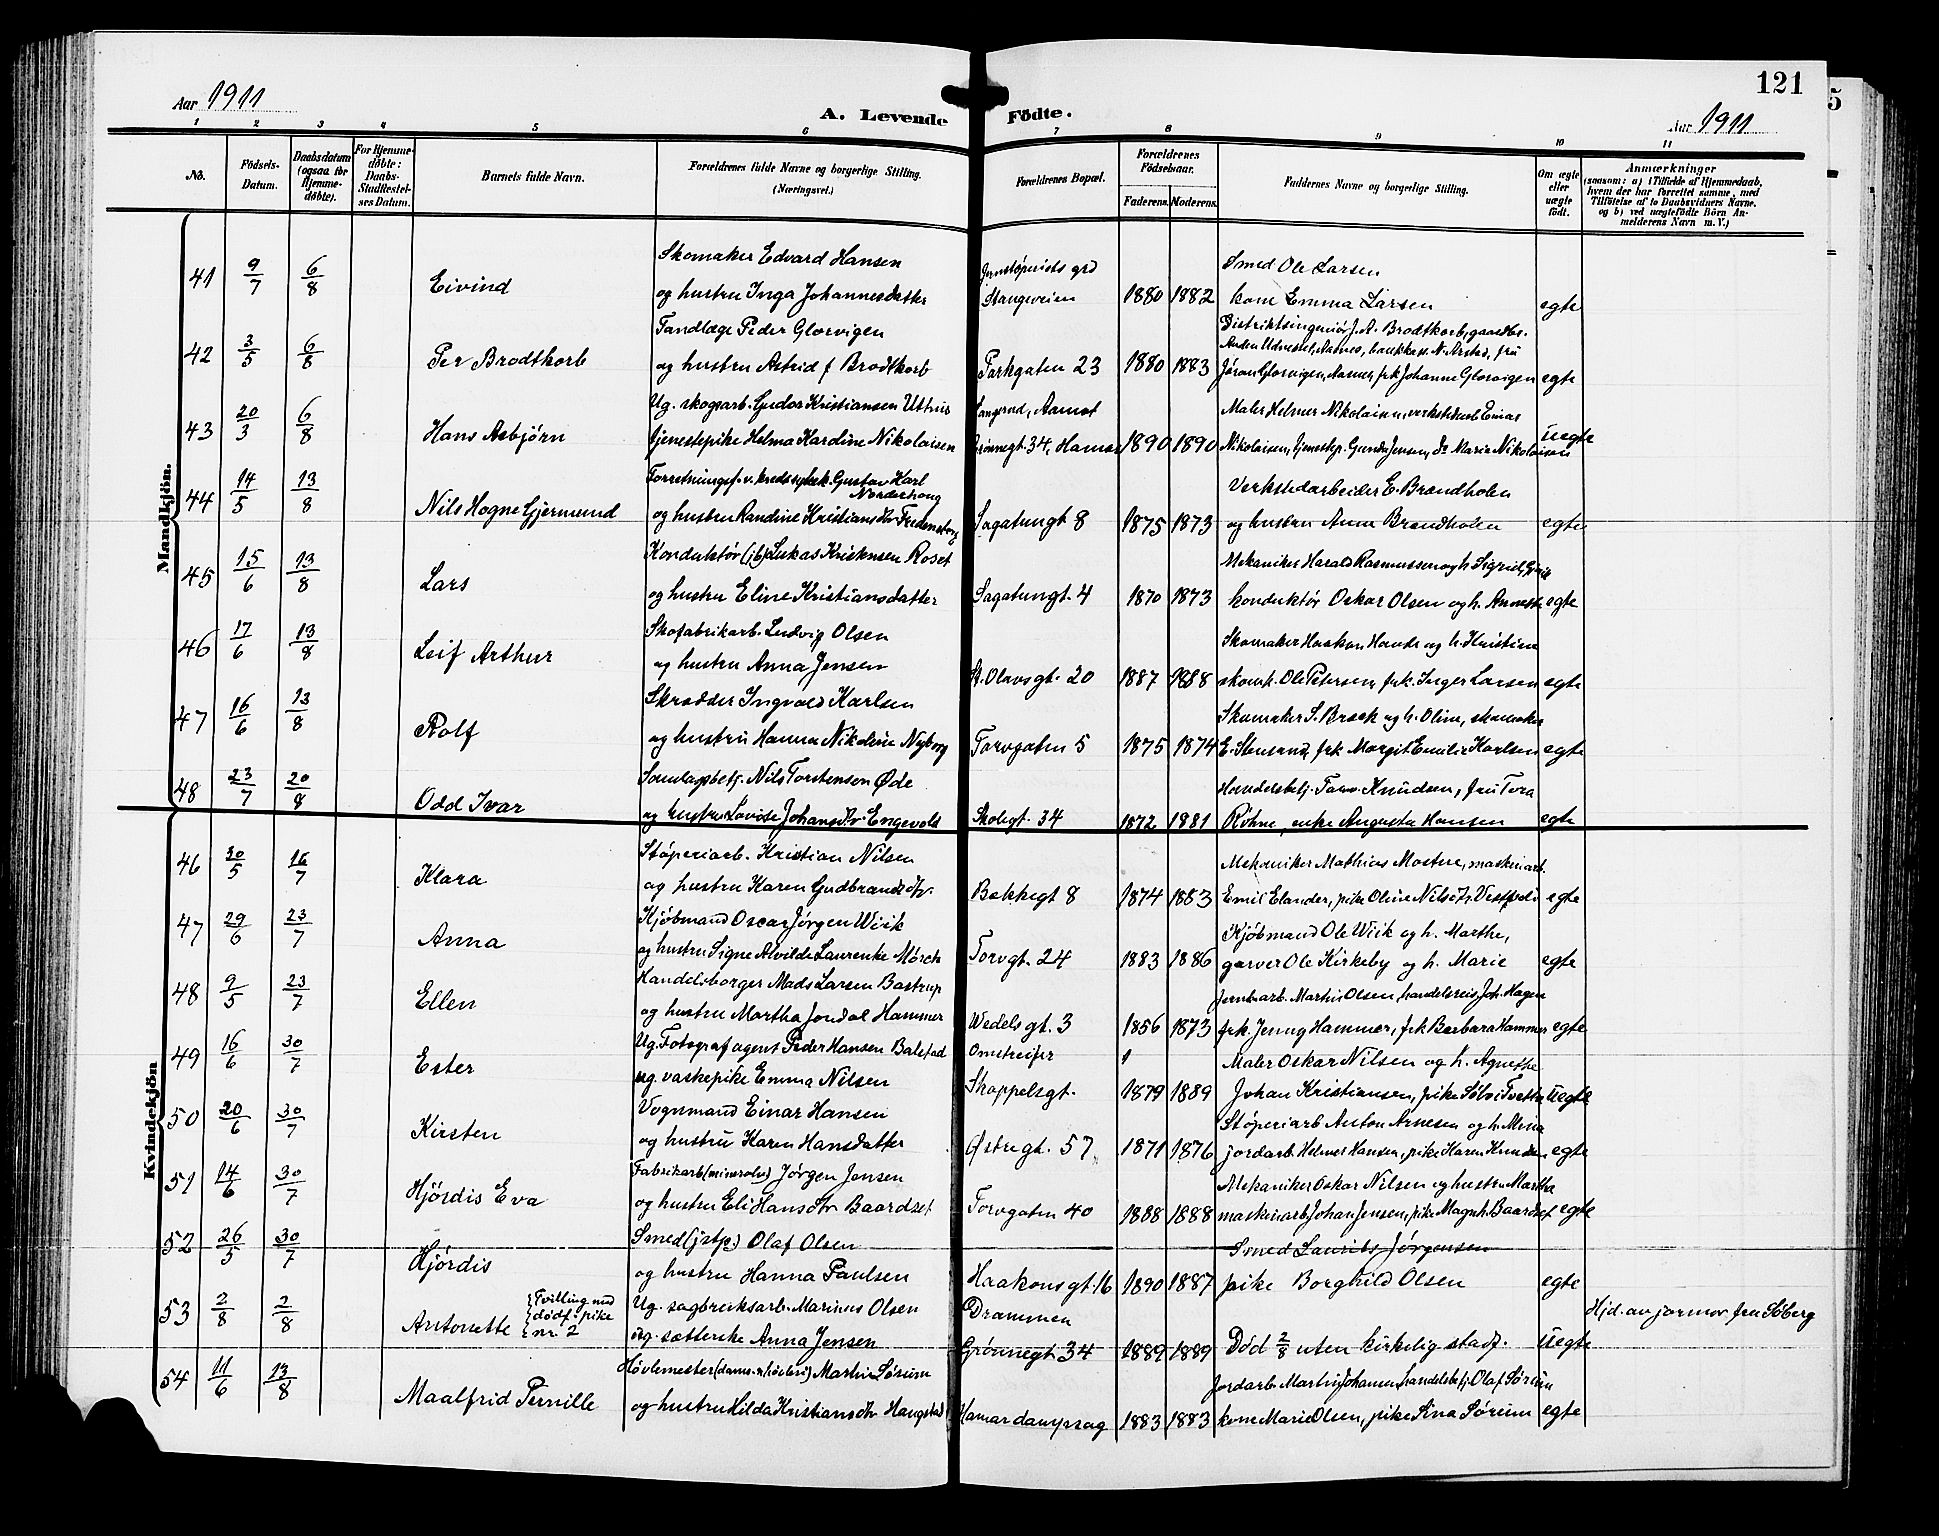 Aar 1911
A. Levende Fødte.
121
Aar 1911
1 2 3 4 5 6 7 8 9 10 11
No. Fødsels-Datum. Daabsdatum (ogsaa for Hjemmedøbte). For Hjemmedøbte: Daabs-Stadfæstelses Datum. Barnets fulde Navn. Forældrenes fulde Navne og borgerlige Stilling. (Næringsvei.) Forældrenes Bopæl. Forældrenes Fødselsaar. Faderens. Moderens. Faddernes Navne og borgerlige Stilling. Om ægte eller uægte født. Anmærkninger (saasom: a) i Tilfælde af Hjemmedaab, hvem der har forrettet samme, med Tilføielse af to Daabsvidners Navne. og b) ved uægtefødte Börn Anmelderens Navn m. V.)
Mandkjön.
Skomaker Edvard Hansen Smed Ole Larsen
41 9/7 6/8 Eivind og hustru Inga Johannesdatter Stangeveien 1880 1882 kone Emma Larsen egte
Tandlæge Peder Glørvigen Distriktsingeniør J. A. Brodtkorb, gaardbr.
42 3/5 6/8 Per Brodtkorb og hustru Astrid f Brodtkorb Parkgaten 23 1880 1883 Jøran Glørvigen, Aasnes, frk Johanne Glørvigen egte
Ug. skogsarb. Gudor Kristiansen Uthus Aamot Maler Helmer Nikolaisen, verkstedarb Einar
43 20/3 6/8 Hans Asbjørn tjenestepike Helma Kardine Nikolaisen Grønnegt. 34, Hamar 1890 1890 Nikolaisen, tjenestep. Gunda Jensen, Do Marie Nikolaisen uegte
Forretningsf. v. kredssykek. Gustav Karl Norderhoug Verkstedarbeider E. Brændholen
44 14/5 13/8 Nils Hogne Gjermund og hustru Randine Kristiansdtr Fredensborg Sagatungt 8 1875 1873 og hustru Anna Brændholen egte
Konduktør (jb) Lukas Kristensen Roset Mekaniker Harald Rasmussen og h. Sigrid
45 15/6 13/8 Lars og hustru Eline Kristiansdatter Sagatungt. 4 1870 1873 konduktør Oskar Olsen og h. Annette egte
Skofabrikarb. Ludvig Olsen Skomaker Haakon Hande og h. Kristine
46 17/6 13/8 Leif Arthur og hustru Anna Jensen St. Olavsgt. 20 1887 1888 skom. Ole Petersen, frk. Inger Larsen egte
Skrædder Ingvald Karlsen Skomaker S. Bræk og h. Oline, skomaker
47 16/6 13/8 Rolf og hustru Hanna Nikoline Nyborg Torvgaten 5 1875 1874 E. Stensrud, frk Margit Emilie Karlsen egte
Samlagsbetj. Nils Torstensen Øde Handelsbetj. Knudsen, fru Tora
48 23/7 20/8 Odd Ivar og hustru Lovise Johansdtr. Engevold Skolegt. 34 1872 1881 Røhne, enke Augusta Hansen egte
Kvindekjön
Støperiarb. Kristian Nilsen Mekaniker Mathias Mostue, maskinarb.
46 30/5 16/7 Klara og hustru Karen Gudbrandsdtr. Bekkegt 8 1874 1883 Emil Elander, pike Oline Nilsdtr. Vestfold egte
Kjøbmand Oscar Jørgen Wiik Kjøbmand Ole Wiik og h. Marthe,
47 29/6 23/7 Anna og hustru Signe Alvilde Laurenke Mørch Torvgt. 24 1883 1886 garver Ole Kirkeby og h. Marie egte
Handelsborger Mads Larsen Bastrup Jernbarb. Martin Olsen, handelsreis Joh. Hagen
48 9/5 23/7 Ellen og hustru Martha Jondal Hammer Wedelsgt. 3 1856 1873 frk. Jenny Hammer, frk Barbara Hammer egte
Ug. Fotografagent Peder Hansen Balstad Omstreifer Maler Oskar Nilsen og h. Agnethe
49 16/6 30/7 Ester ug. vaskepike Emma Nilsen Skappelsgt. 1879 1889 Johan Kristiansen, pike Sølvi Tvetter uegte
Vognmand Einar Hansen Støperiarb Anton Arnesen og h. Mina
50 20/6 30/7 Kirsten og hustru Karen Hansdatter Østregt. 57 1871 1876 jordarb. Helmer Hansen, pike Karen Knudsen egte
Fabrikarb (mineralv) Jørgen Jensen Mekaniker Oskar Nilsen og hustru Martha
51 14/6 30/7 Hjørdis Eva og hustru Eli Hansdtr Baardset Torvgaten 40 1888 1888 maskinarb Johan Jensen, pike Magnh. Baardset egte
Smed (jstp.) Olaf Olsen Smed Laurits Jørgensen
52 26/5 30/7 Hjørdis og hustru Hanna Paulsen Haakonsgt. 16 1890 1887 pike Borghild Olsen egte
Tvilling med dødf. pike nr. 2 Ug. sagbruksarb. Marinus Olsen Drammen Hjd. av jormor fru Søberg
53 2/8 2/8 Antonette ug. sætterske Anna Jensen Grønnegt 34 1889 1889 Død 2/8 uten kirkelig stadf. uegte
Høvlemester (damp-høvleri) Martin Sørum Jordarb Martin Johansen, handelsbetj Olaf Sørum
54 11/6 13/8 Maalfrid Pernille og hustru Hilda Kristiansdtr Haugstad Hamar dampsag 1883 1883 kone Marie Olsen, pike Sina Sørum egte